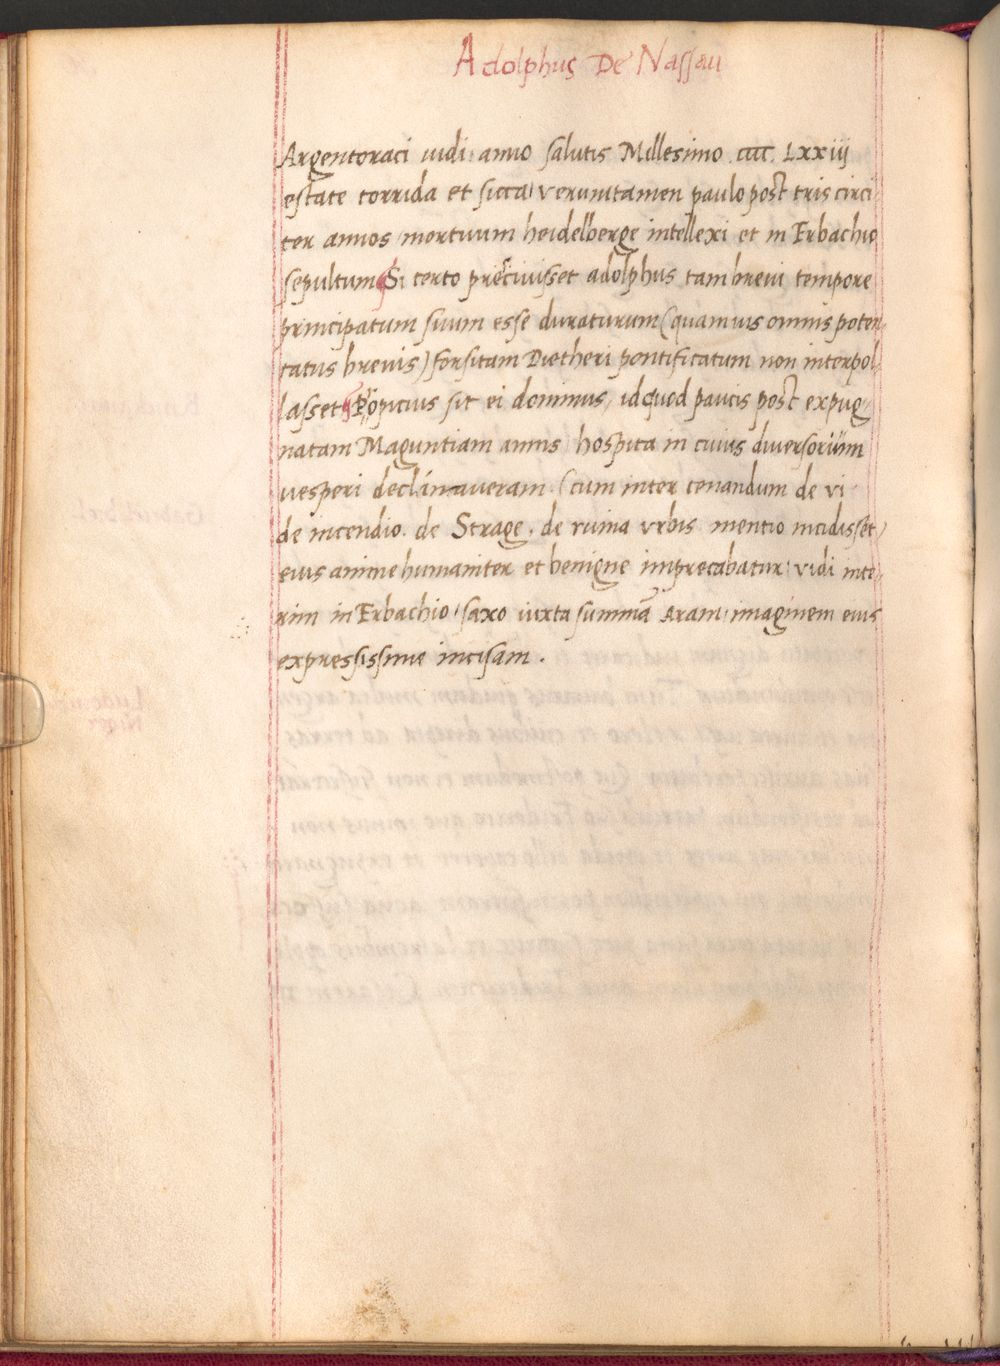 Adolphus De Nassau
Argentoraci uidi anno salutis Millesimo cccc LXXiij
estate torrida et sicca: verumtamen paulo post tris circi-
ter annos mortuum heidelberge intellexi et in Erbachio
sepultum Si certo prescivisset adolphus tam brevi tempore
principatum suum esse duraturum (quamuis omnis poten-
tatus brevis) forsitam Dietheri pontificatum non interpol-
lasset Propicius sit ei dominus, id quod paucis post expug-
natam Maguntiam annis hospita in cuius diversorium
vesperi declinaveram (cum inter cenandum de vi
de incendio. de Strage. de ruina vrbis mentio incidisset)
eius anime humaniter et benigne imprecabatur: vidi inte-
rim in Erbachio saxo iuxta summā Aram imaginem eius
expressissime incisam.